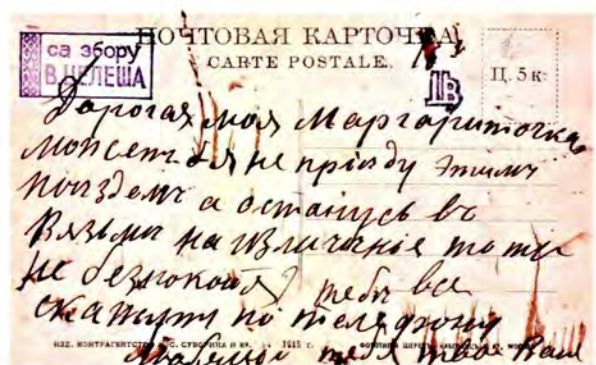 ПОЧТОВАЯ КАРТОЧКА
CARTE POSTALE.
са збору
В. ЦЕЛЕША
Ц. 5 к.
Дорогая моя Маргариточка
можетъ я не прiѣду этимъ
поѣздомъ а останусь въ
Вязьмѣ на излѣченiе то ты
не безпокойся тебѣ все
скажутъ по телефону
тебя твой Ваш
ИЗД. КОНТРАГЕНТСТВО А. С. СУВОРИНА И Кº. 1915 г.
ФОТОТИПIЯ ШЕРЕРЪ, НАБГОЛЬЦЪ И Кº. МОСКВА